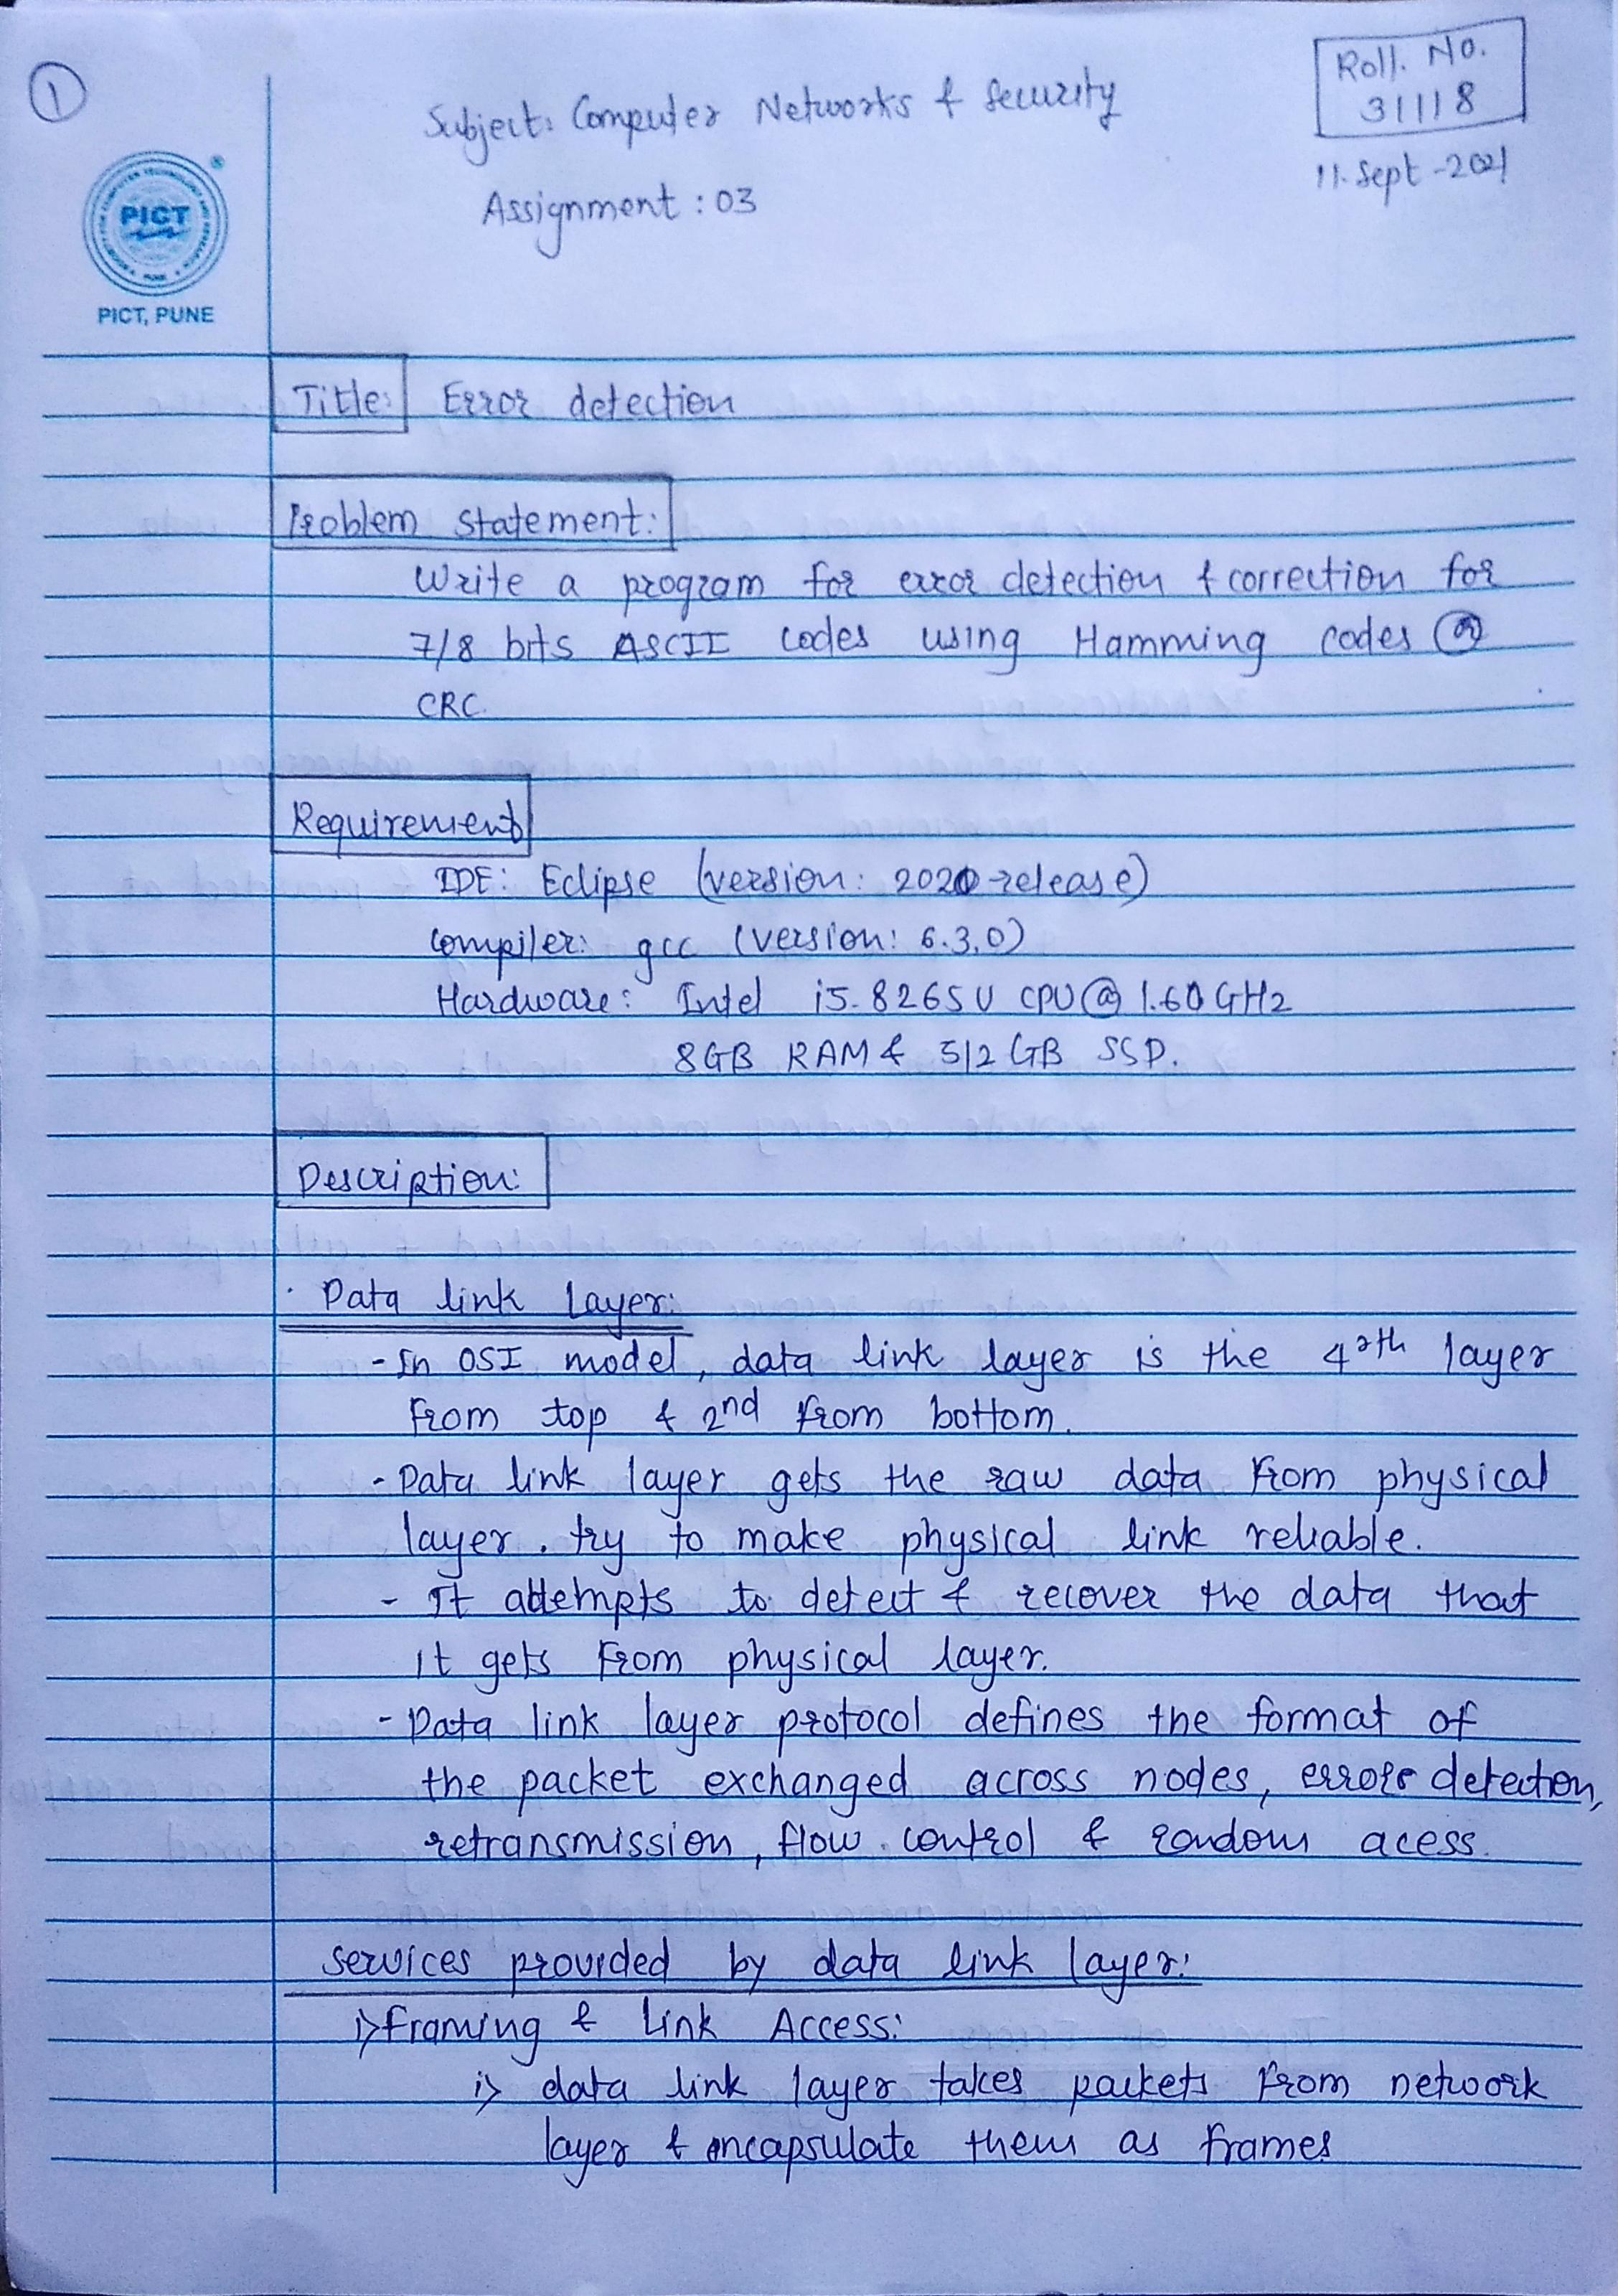 1
Roll. No.
31118
Subject: Computer Networks & Security
11-Sept-2021
Assignment : 03
PICT
PICT, PUNE
Title: Error detection
Problem statement:
Write a program for error detection & correction for
7/8 bits ASCII codes using Hamming codes or
CRC.
Requirement
IDE: Eclipse (version: 2020-release)
Compiler: gcc (version: 6.3.0)
Hardware: Intel i5-8265U CPU @ 1.60 GHz
8GB RAM & 512 GB SSD.
Description:
· Data link layer:
- In OSI model, data link layer is the 4rth layer
from top & 2nd from bottom.
- Data link layer gets the raw data from physical
layer. try to make physical link reliable.
- It attempts to detect & recover the data that
it gets from physical layer.
- Data link layer protocol defines the format of
the packet exchanged across nodes, errors detection,
retransmission, flow control & random acess.
services provided by data link layer:
i> framing & link Access:
i> data link layer takes packets from network
layer & encapsulate them as frames